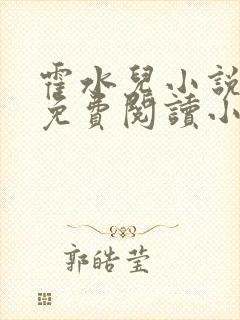 霍水兒小說
免費閱讀小
郭皓莹